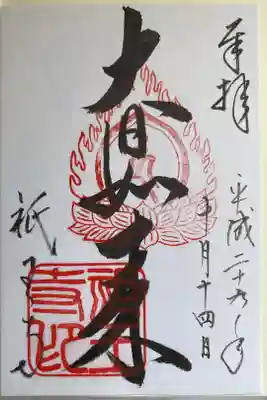 奉拝
平成二十九年
十月十四日
大日如来
祇王寺